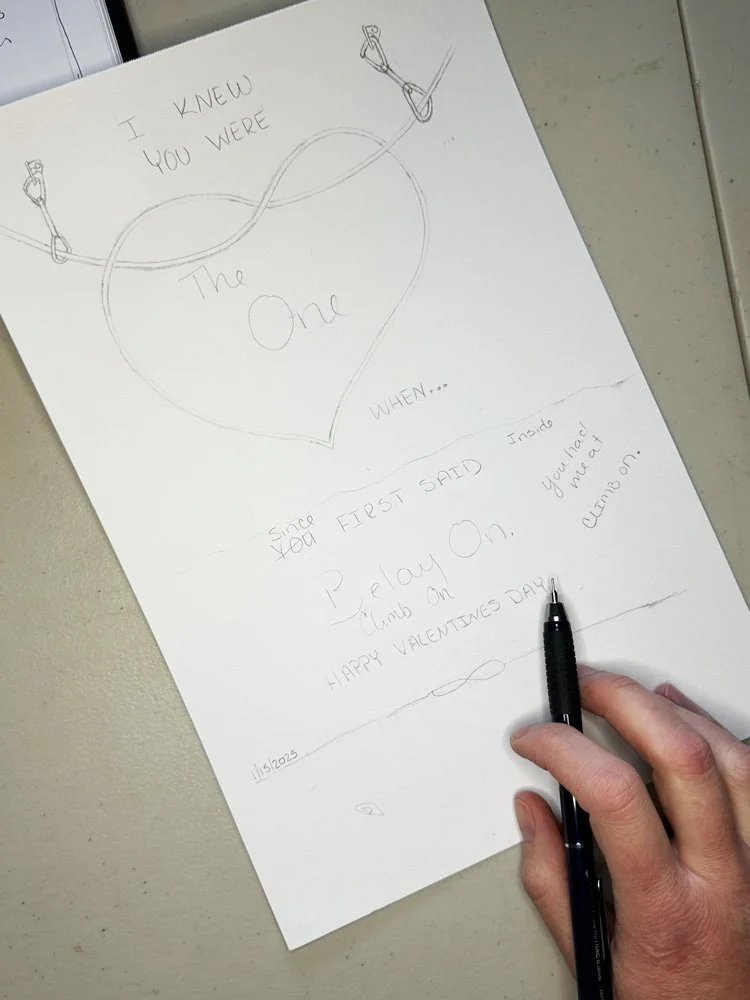 I KNEW
YOU WERE
The
One
WHEN...
Inside
you had
me at
CLIMB ON.
Since
YOU FIRST SAID
Belay On.
Climb On
HAPPY VALENTINES DAY
1/15/2025